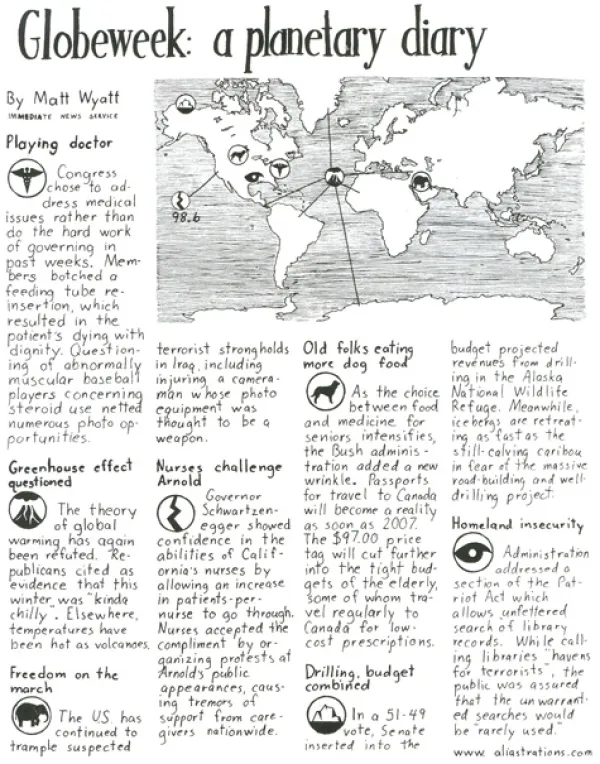 Globeweek: a planetary diary
By Matt Wyatt
IMMEDIATE NEWS SERVICE
98.6
Playing doctor
Congress
chose to ad-
dress medical
issues rather than
do the hard work
of governing in
past weeks. Mem-
bers botched a
feeding tube re-
insertion, which
resulted in the
patient's dying with
dignity. Question-
ing of abnormally
muscular baseball
players concerning
steroid use netted
numerous photo op-
portunities.
Greenhouse effect
questioned
The theory
of global
warming has again
been refuted. Re-
publicans cited as
evidence that this
winter was "kinda
chilly". Elsewhere,
temperatures have
been hot as volcanoes.
Freedom on the
march
The US has
continued to
trample suspected
terrorist strongholds
in Iraq, including
injuring a camera-
man whose photo
equipment was
thought to be a
weapon.
Nurses challenge
Arnold
Governor
Schwartzen-
egger showed
confidence in the
abilities of Calif-
ornia's nurses by
allowing an increase
in patients-per-
nurse to go through.
Nurses accepted the
compliment by or-
ganizing protests at
Arnold's public
appearances, caus-
ing tremors of
support from care-
givers nationwide.
Old folks eating
more dog food
As the choice
between food
and medicine for
seniors intensifies,
the Bush adminis-
tration added a new
wrinkle. Passports
for travel to Canada
will become a reality
as soon as 2007.
The $97.00 price
tag will cut further
into the tight bud-
gets of the elderly,
some of whom tra-
vel regularly to
Canada for low-
cost prescriptions.
Drilling, budget
combined
In a 51-49
vote, Senate
inserted into the
budget projected
revenues from drill-
ing in the Alaska
National Wildlife
Refuge. Meanwhile,
icebergs are retreat-
ing as fast as the
still-calving caribou
in fear of the massive
road-building and well-
drilling project.
Homeland insecurity
Administration
addressed a
section of the Pat-
riot Act which
allows unfettered
search of library
records. While call-
ing libraries "havens
for terrorists", the
public was assured
that the unwarrant-
ed searches would
be "rarely used."
www.aliastrations.com